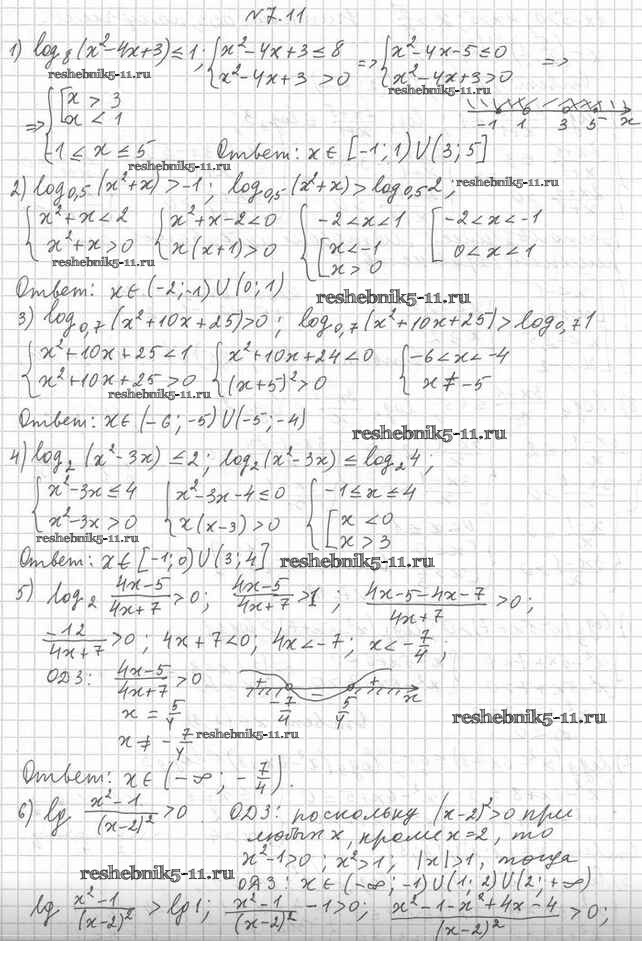 №7.11
1) log₈(x²-4x+3)≤1; { x²-4x+3≤8 ; x²-4x+3>0 => { x²-4x-5≤0 ; x²-4x+3>0 =>
reshebnik5-11.ru reshebnik5-11.ru
=> { [ x>3 ; x<1 ; -1≤x≤5
-1 1 3 5 x
reshebnik5-11.ru
Ответ: x∈[-1;1)∪(3;5]
2) log₀,₅(x²+x)>-1; log₀,₅(x²+x)>log₀,₅2;
reshebnik5-11.ru
{ x²+x<2 { x²+x-2<0 { -2<x<1 [ -2<x<-1
x²+x>0 x(x+1)>0 [ x<-1 ; x>0 0<x<1
reshebnik5-11.ru
Ответ: x∈(-2;-1)∪(0;1)
reshebnik5-11.ru
3) log₀,₇(x²+10x+25)>0; log₀,₇(x²+10x+25)>log₀,₇1
{ x²+10x+25<1 { x²+10x+24<0 { -6<x<-4
x²+10x+25>0 (x+5)²>0 x≠-5
reshebnik5-11.ru
Ответ: x∈(-6;-5)∪(-5;-4)
reshebnik5-11.ru
4) log₂(x²-3x)≤2; log₂(x²-3x)≤log₂4;
{ x²-3x≤4 { x²-3x-4≤0 { -1≤x≤4
x²-3x>0 x(x-3)>0 [ x<0 ; x>3
reshebnik5-11.ru
Ответ: x∈[-1;0)∪(3;4]
reshebnik5-11.ru
5) log₂ (4x-5)/(4x+7)>0; (4x-5)/(4x+7)>1; (4x-5-4x-7)/(4x+7)>0;
-12/(4x+7)>0; 4x+7<0; 4x<-7; x<-7/4;
ОДЗ: (4x-5)/(4x+7)>0
+ - + -7/4 5/4 x
x=5/4
reshebnik5-11.ru
x≠-7/4
reshebnik5-11.ru
Ответ: x∈(-∞;-7/4).
6) lg (x²-1)/(x-2)²>0 ОДЗ: поскольку (x-2)²>0 при
любых x, кроме x=2, то
x²-1>0; x²>1; |x|>1, тогда
reshebnik5-11.ru
ОДЗ: x∈(-∞;-1)∪(1;2)∪(2;+∞)
lg (x²-1)/(x-2)²>lg1; (x²-1)/(x-2)²-1>0; (x²-1-x²+4x-4)/(x-2)²>0;